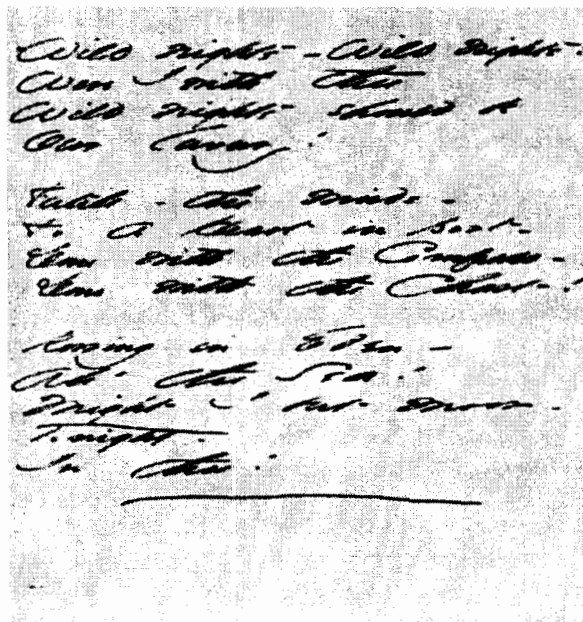 Wild nights - Wild nights!
Were I with thee
Wild nights should be
Our luxury!
Futile - the winds -
To a Heart in port -
Done with the Compass -
Done with the Chart!
Rowing in Eden -
Ah - the Sea!
Might I but moor -
Tonight -
In thee!